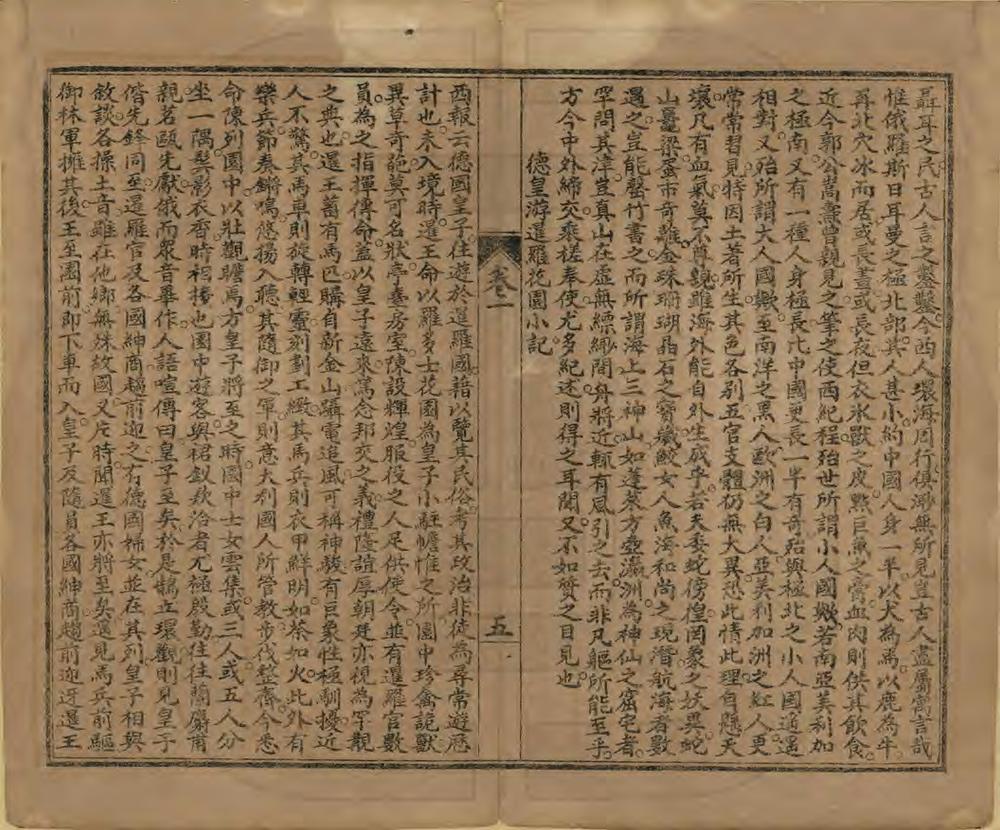 聶耳之民古人言之鑿鑿今西人環海周行俱渺無所見豈古人盡屬寓言哉
惟俄羅斯日耳曼之極北部其人甚小約中國人身一半以犬為馬以鹿為牛
再北穴冰而居或長晝或長夜但衣氷獸之皮㸃巨魚之膏血肉則供其飲食
近今郭公嵩燾曾親見之筆之使西紀程殆世所謂小人國歟若南亞美利加
之極南又有一種人身極長比中國更長一半有奇殆與極北之小人國遥遥
相對又殆所謂大人國歟至南洋之黑人歐洲之白人亞美利加洲之紅人更
常常習見特因土著所生其色各别五官支體仍無大異恐此情此理自懸天
壤凡有血氣莫不尊親雖海外能自外生成乎若夫委蛇傍徨罔象之妖異蛇
山鼍梁蛋市奇雞金珠珊瑚晶石之寶纎鮫女人魚海和尚之現潛航海者數
遇之豈能罄竹書之而所謂海上三神山如蓬萊方壺瀛洲為神仙之窟宅者
罕問其津豈真山在虛無縹緲間舟將近輒有風引之去而非凡軀所能至乎
方今中外締交乘槎奉使尤多紀述則得之耳聞又不如贅之目見也
德皇游暹羅花園小記
卷一
五
西報云德國皇子往遊於暹羅國藉以覽其民俗考其政治非徒為尋常遊歷
計也未入境時暹王命以羅多士花園為皇子小駐幨帷之所園中珍禽詭獸
異草奇葩莫可名狀亭臺房室陳設輝煌服役之人足供使令並有暹羅官數
員為之指揮傳命蓋以皇子遠來篤念邦交之義禮隆誼厚朝廷亦視為罕覯
之典也暹王蓄有馬匹購自新金山躡電追風可稱神駿有巨象性極馴擾近
人不驚其馬車則旋轉輕靈刻劃工緻其馬兵則衣甲鮮明如荼如火此外有
樂兵節奏鏘鳴悠揚入聽其隨御之軍則意大利國人所管教步伐整齊今悉
命陳列園中以壯觀瞻焉方皇子將至之時國中士女雲集或三人或五人分
坐一隅髩影衣香時相接也園中遊客與裙釵欵洽者尤極殷勤往往蘭麝甫
親茗甌先獻俄而眾音畢作人語喧傳曰皇子至矣於是鵠立環觀則見皇子
偕先鋒同至暹羅官及各國紳商趨前迎之有德國婦女並在其列皇子相與
敘談各操土音雖在他鄉無殊故國又片時聞暹王亦將至矣遥見馬兵前驅
御林軍擁其後王至園前即下車而入皇子及隨員各國紳商趨前迎迓暹王